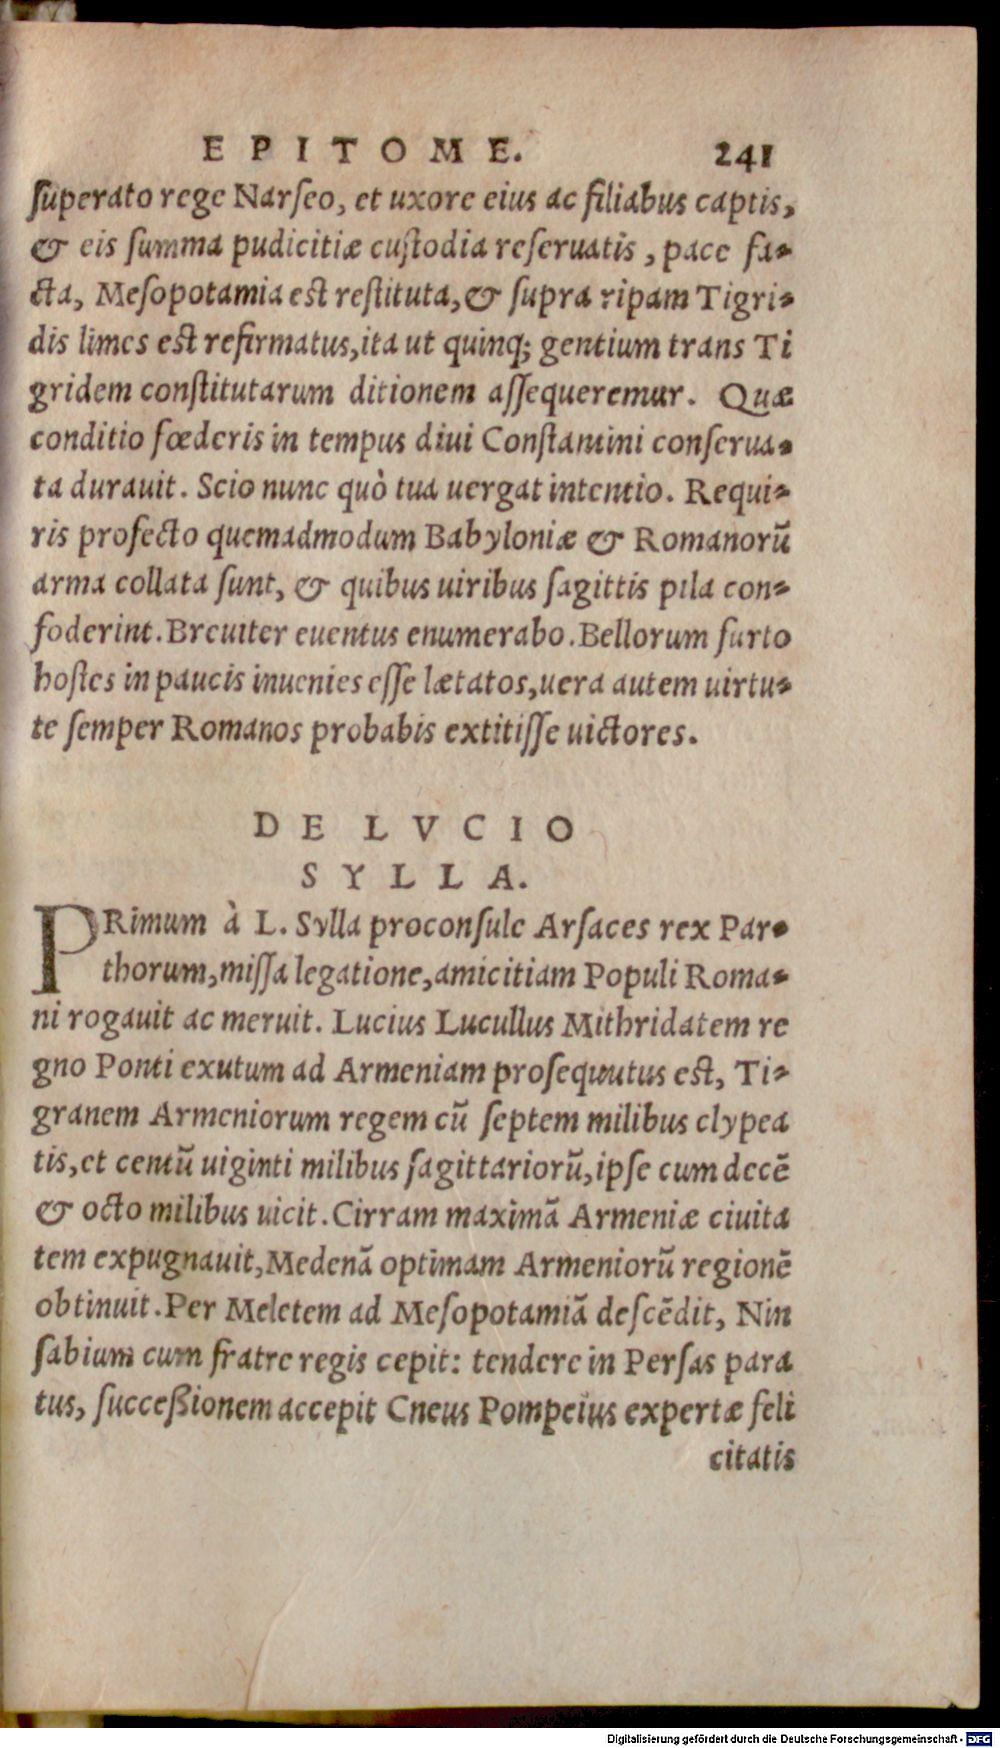 EPITOME. 241
superato rege Narseo, et uxore eius ac filiabus captis,
& eis summa pudicitiæ custodia reseruatis, pace fa-
cta, Mesopotamia est restituta, & supra ripam Tigri-
dis limes est refirmatus, ita ut quinq; gentium trans Ti
gridem constitutarum ditionem assequeremur. Quæ
conditio fœderis in tempus diui Constantini conserua-
ta durauit. Scio nunc quò tua uergat intentio. Requi-
ris profecto quemadmodum Babyloniæ & Romanorū
arma collata sunt, & quibus uiribus sagittis pila con-
foderint. Breuiter euentus enumerabo. Bellorum furto
hostes in paucis inuenies esse lætatos, uera autem uirtu-
te semper Romanos probabis extitisse uictores.
DE LVCIO
SYLLA.
PRimum à L. Sylla proconsule Arsaces rex Par-
thorum, missa legatione, amicitiam Populi Roma-
ni rogauit ac meruit. Lucius Lucullus Mithridatem re
gno Ponti exutum ad Armeniam prosequutus est, Ti-
granem Armeniorum regem cū septem milibus clypea
tis, et centū uiginti milibus sagittariorū, ipse cum decē
& octo milibus uicit. Cirram maximā Armeniæ ciuita
tem expugnauit, Medenā optimam Armeniorū regionē
obtinuit. Per Meletem ad Mesopotamiā descēdit, Nin
sabium cum fratre regis cepit: tendere in Persas para
tus, succeßionem accepit Cneus Pompeius expertæ feli
citatis
Digitalisierung gefördert durch die Deutsche Forschungsgemeinschaft - DFG